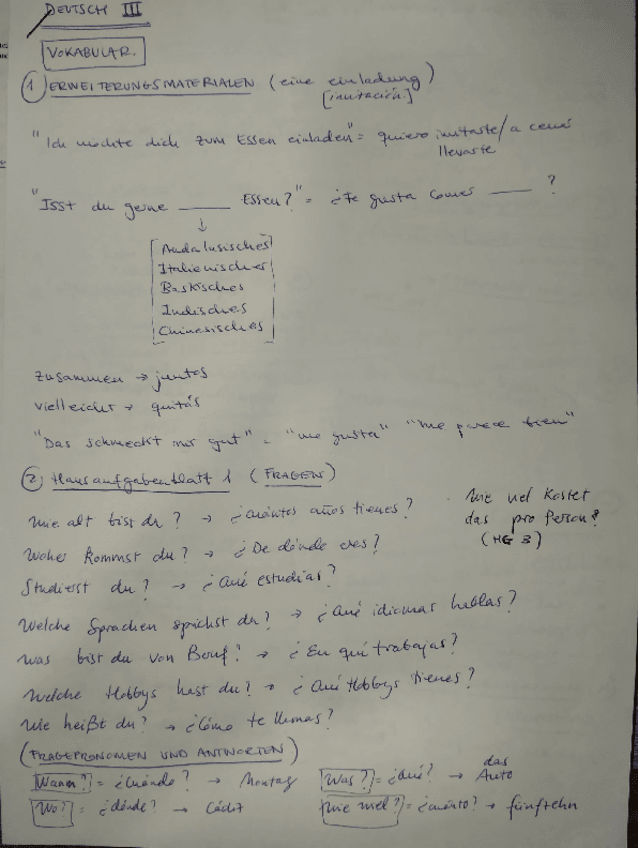 DEUTSCH III
VOKABULAR.
1) ERWEITERUNGSMATERIALEN (eine einladung)
[invitación]
"Ich möchte dich zum Essen einladen" = quiero invitarte/a cenar
llevarte
"Isst du gerne ____ Essen?" = ¿Te gusta comer ____ ?
↓
Andalusisches
Italienisches
Baskisches
Indisches
Chinesisches
zusammen → juntos
vielleicht → quizás
"Das schmeckt mir gut" = "me gusta" "me parece bien"
2) Hausaufgabenblatt 1 (FRAGEN)
Wie alt bist du? → ¿cuántos años tienes?
· Wie viel kostet
das pro Person?
(HG 3)
Woher kommst du? → ¿De dónde eres?
Studierst du? → ¿Qué estudias?
Welche Sprachen sprichst du? → ¿Qué idiomas hablas?
Was bist du von Beruf? → ¿En qué trabajas?
Welche Hobbys hast du? → ¿Qué Hobbys tienes?
Wie heißt du? → ¿Cómo te llamas?
(FRAGEPRONOMEN UND ANTWORTEN)
Wann? = ¿Cuándo? → Montag
Was? = ¿Qué? → das Auto
Wo? = ¿dónde? → Cádiz
Wie viel? = ¿cuánto? → fünfzehn